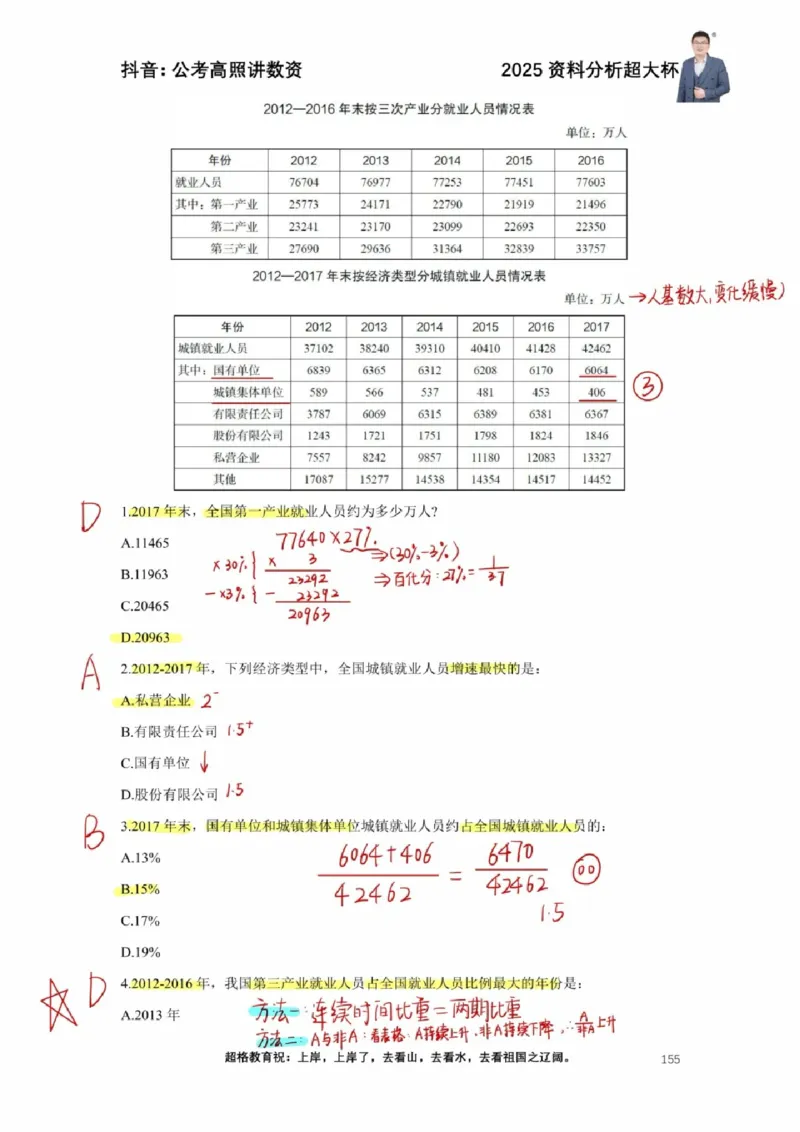 抖音：公考高照讲数资 2025 资料分析超大杯
2012—2016 年末按三次产业分就业人员情况表
单位：万人
年份 2012 2013 2014 2015 2016
就业人员 76704 76977 77253 77451 77603
其中：第一产业 25773 24171 22790 21919 21496
第二产业 23241 23170 23099 22693 22350
第三产业 27690 29636 31364 32839 33757
2012—2017 年末按经济类型分城镇就业人员情况表
单位：万人 →人基数大，变化缓慢）
年份 2012 2013 2014 2015 2016 2017
城镇就业人员 37102 38240 39310 40410 41428 42462
其中：国有单位 6839 6365 6312 6208 6170 6064
城镇集体单位 589 566 537 481 453 406 ③
有限责任公司 3787 6069 6315 6389 6381 6367
股份有限公司 1243 1721 1751 1798 1824 1846
私营企业 7557 8242 9857 11180 12083 13327
其他 17087 15277 14538 14354 14517 14452
D 1.2017 年末，全国第一产业就业人员约为多少万人?
A.11465 77640×27%
⇒(30%-3%)
B.11963 ×30%{ × 3
23292 ⇒百化分：27%=1/37
C.20465 -×3%{ - 23292
20963
D.20963
A 2.2012-2017 年，下列经济类型中，全国城镇就业人员增速最快的是：
A.私营企业 2⁻
B.有限责任公司 1.5⁺
C.国有单位 ↓
D.股份有限公司 1.5
B 3.2017 年末，国有单位和城镇集体单位城镇就业人员约占全国城镇就业人员的：
A.13% 6064+406 / 42462 = 6470 / 42462 00
B.15%
1.5
C.17%
D.19%
D 4.2012-2016 年，我国第三产业就业人员占全国就业人员比例最大的年份是：
A.2013 年 方法一：连续时间比重=两期比重
方法二：A与非A：看表格：A持续上升，非A持续下降，∴A/非A上升
超格教育祝：上岸，上岸了，去看山，去看水，去看祖国之辽阔。 155